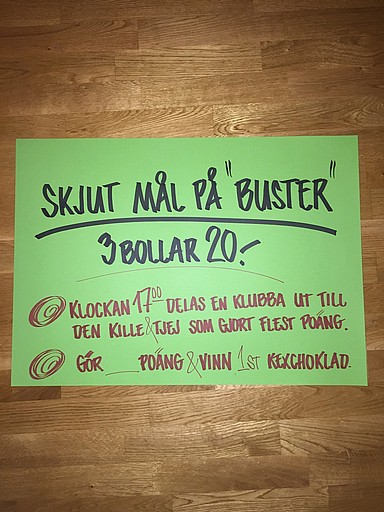 SKJUT MÅL PÅ "BUSTER"
3 BOLLAR 20.-
KLOCKAN 1700 DELAS EN KLUBBA UT TILL
DEN KILLE & TJEJ SOM GJORT FLEST POÄNG.
GÖR ___ POÄNG & VINN 1ST KEXCHOKLAD.